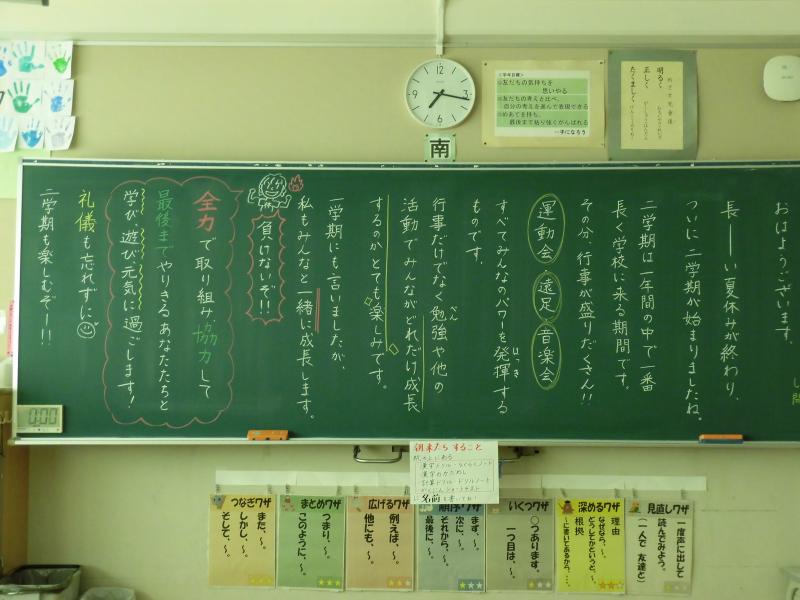 おはようございます。
長――い夏休みが終わり、
ついに二学期が始まりましたね。
二学期は一年間の中で一番
長く学校に来る期間です。
その分、行事が盛りだくさん!!
運動会 遠足 音楽会
すべてみんなのパワーを発揮する
はっき
ものです。
行事だけでなく勉強や他の
べん
活動でみんながどれだけ成長
するのかとても楽しみです。
一学期にも言いましたが、
私もみんなと一緒に成長します。
負けないぞ!!
全力で取り組み協力して
最後までやりきるあなたたちと
学び遊び元気に過ごします!
礼儀も忘れずに
二学期も楽しむぞー!!
0:00
南
12
3
6
9
<学年目標>
○友だちの気持ちを
思いやる
○友だちの考えと比べ、
自分の考えを進んで表現できる
○めあてを持ち、
最後まで粘り強くがんばれる
一手になろう
明るく
正しく
たくましく
朝来たらすること
漢字ドリル
計算ドリル・ドリルノート
名前を書いてね!
見直しワザ
一度声に出して
読んでみよう。
(一人で 友達と)
深めるワザ
理由
なぜなら、~。
どうしてかというと、~。
根拠
~に書いてあるから、…。
いくつワザ
○つあります。
一つ目は、~。
順序ワザ
まず、~。
次に、~。
それから、~。
最後に、~。
広げるワザ
例えば、~。
他にも、~。
まとめワザ
つまり、~。
このように、~。
つなぎワザ
また、~。
しかし、~。
そして、~。